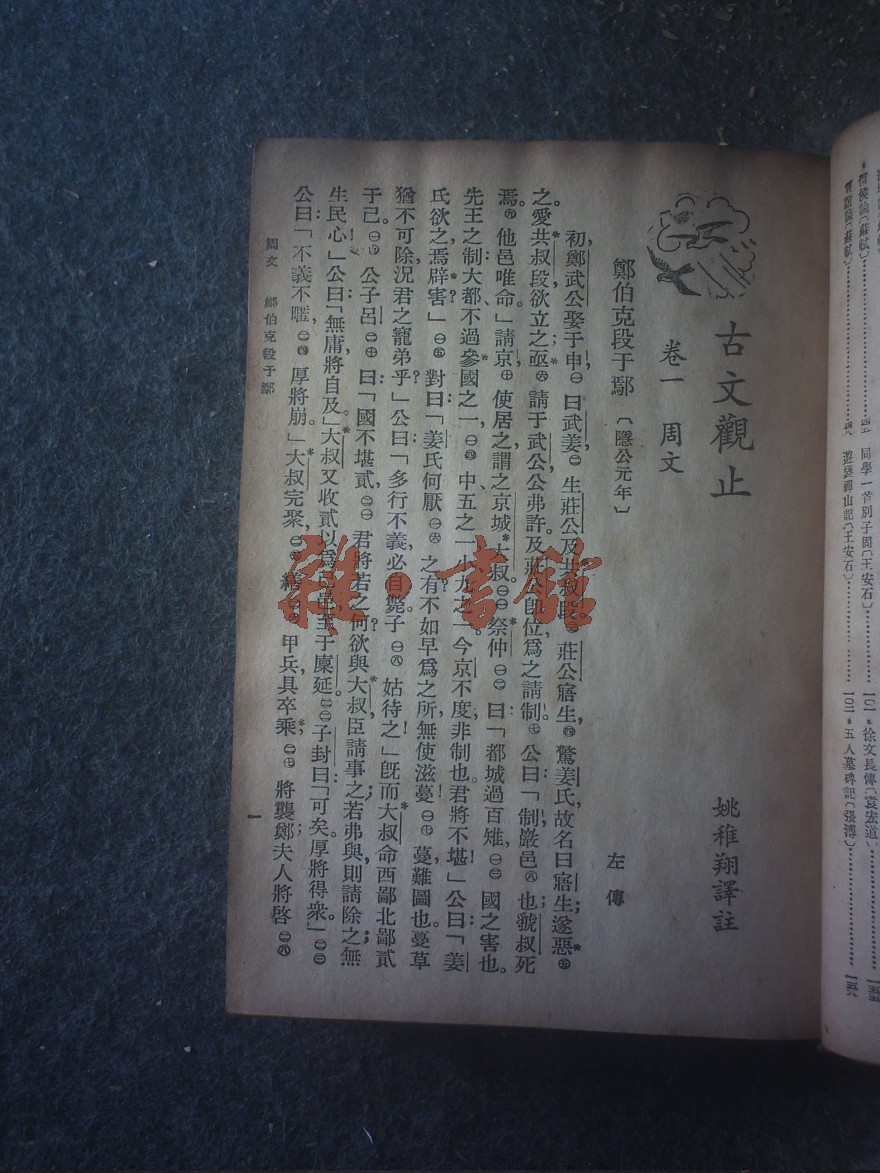 古文觀止
姚稚翔譯註
卷一 周文
鄭伯克段于鄢〔隱公元年〕
左傳
初,鄭武公娶于申,㊀曰武姜,㊁生莊公及共叔段。㊂莊公寤生,㊃驚姜氏,故名曰寤生;遂惡㊄
之。愛共叔段,欲立之;亟㊅請于武公,公弗許。及莊公卽位,爲之請制。㊆公曰:「制,巖邑㊇也;虢叔死
焉。㊈他邑唯命」請京,㊉使居之,謂之京城大叔。㊀㊀祭仲㊀㊁曰:「都城過百雉,㊀㊂國之害也。
先王之制:大都,不過參國之一;㊀㊃中,五之一;小,九之一。今京不度,非制也。君將不堪!」公曰:「姜
氏欲之,焉辟害?」㊀㊄對曰:「姜氏何厭㊀㊅之有?不如早爲之所,無使滋蔓!㊀㊆蔓,難圖也。蔓草
猶不可除,況君之寵弟乎?」公曰:「多行不義,必自斃。子㊀㊇姑待之!」旣而大叔命西鄙北鄙貳
于己。㊀㊈公子呂㊁㊉曰:「國不堪貳,㊁㊀君將若之何?欲與大叔,臣請事之;若弗與,則請除之;無
生民心!」公曰:「無庸,將自及」大叔又收貳以爲己邑,至于廩延。㊁㊁子封曰:「可矣。厚將得衆。」㊁㊂
公曰:「不義不暱,㊁㊃厚將崩。」大叔完聚,㊁㊄繕㊁㊅甲兵,具卒乘;㊁㊆將襲鄭;夫人將啓㊁㊇
周文 鄭伯克段于鄢
一
賈誼論〔蘇軾〕
同學一首別子固〔王安石〕
一〇一
徐文長傳〔袁宏道〕
一五五
遊褒禪山記〔王安石〕
一〇二
五人墓碑記〔張溥〕
一五六
雜·書館